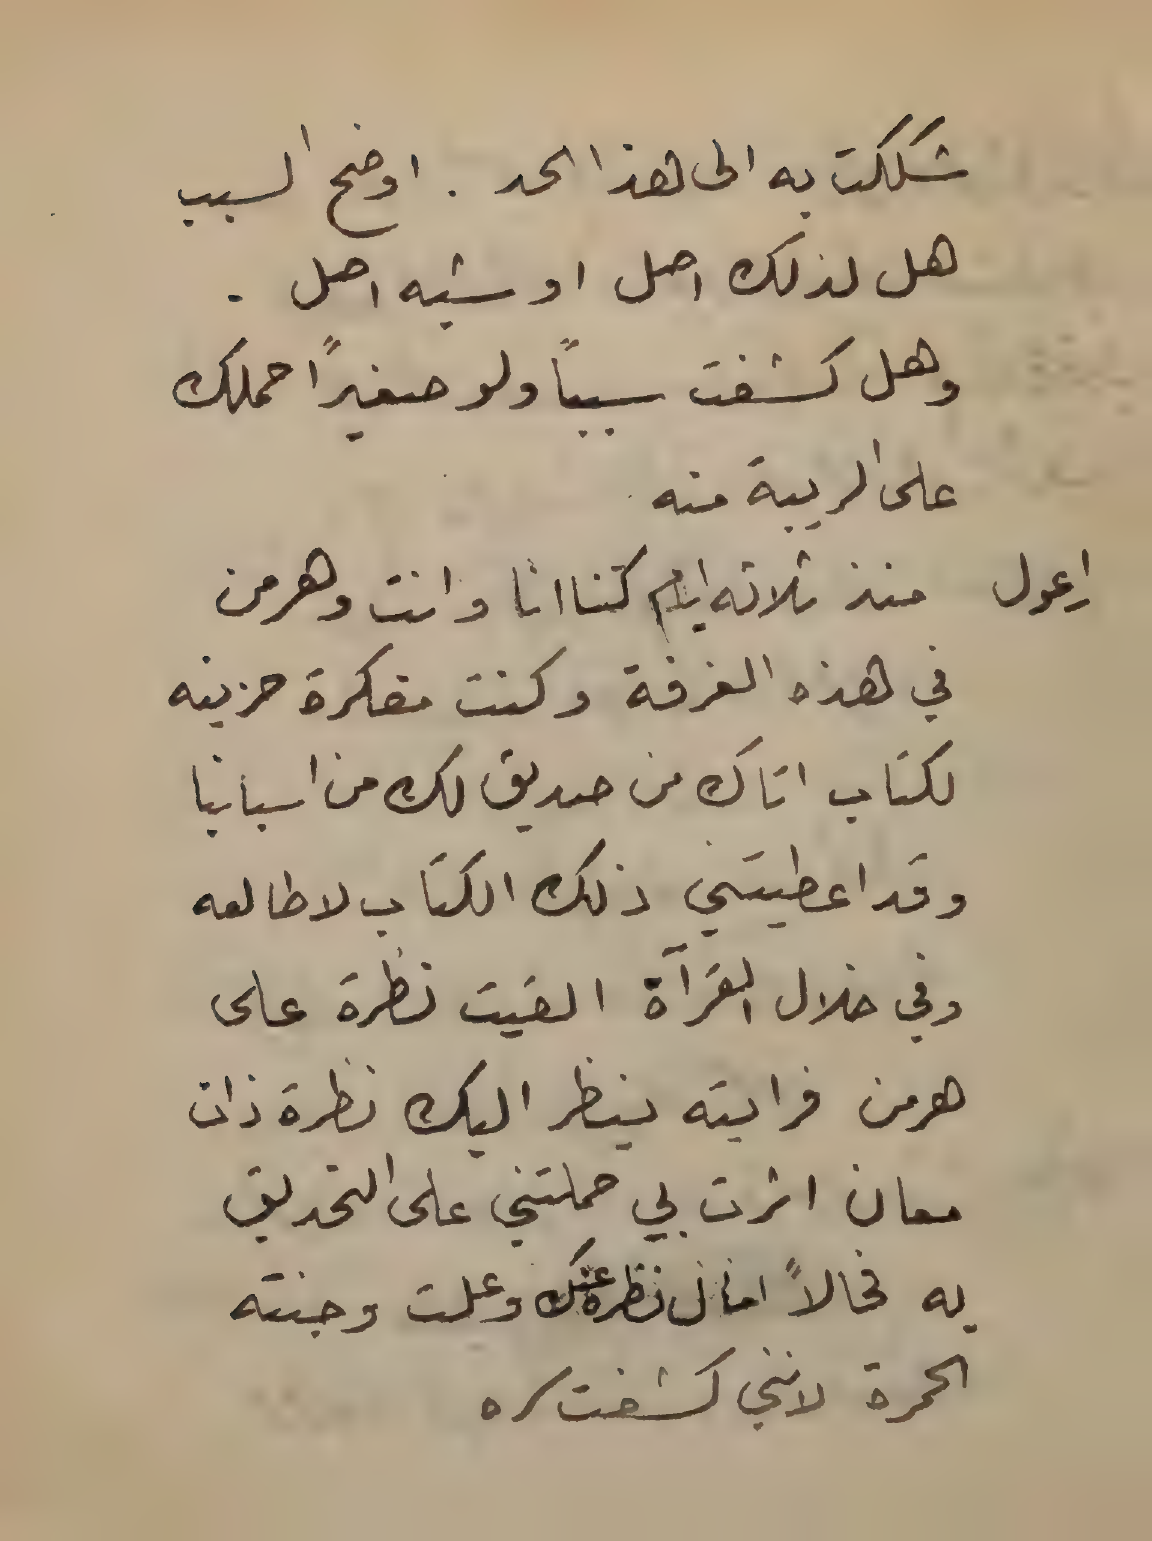 شككت به الى هذا الحد . اوضح السبب
هل لذلك اصل او شبه اصل .
وهل كشفت سبباً ولو صغيراً حملك
على الريبة منه
اعول منذ ثلاثه ايام كنا انا وانت وهرمن
في هذه الغرفة وكنت مفكرة حزينه
لكتاب اتاك من صديق لك من اسبانيا
وقد اعطيتني ذلك الكتاب لاطالعه
وفي خلال القرآة القيت نظرة على
هرمن فرايته ينظر اليك نظرة ذات
معان اثرت بي حملتني على التحديق
به فحالاً امال نظره عنك وعلت وجنته
الحمرة لانني كشفت سره